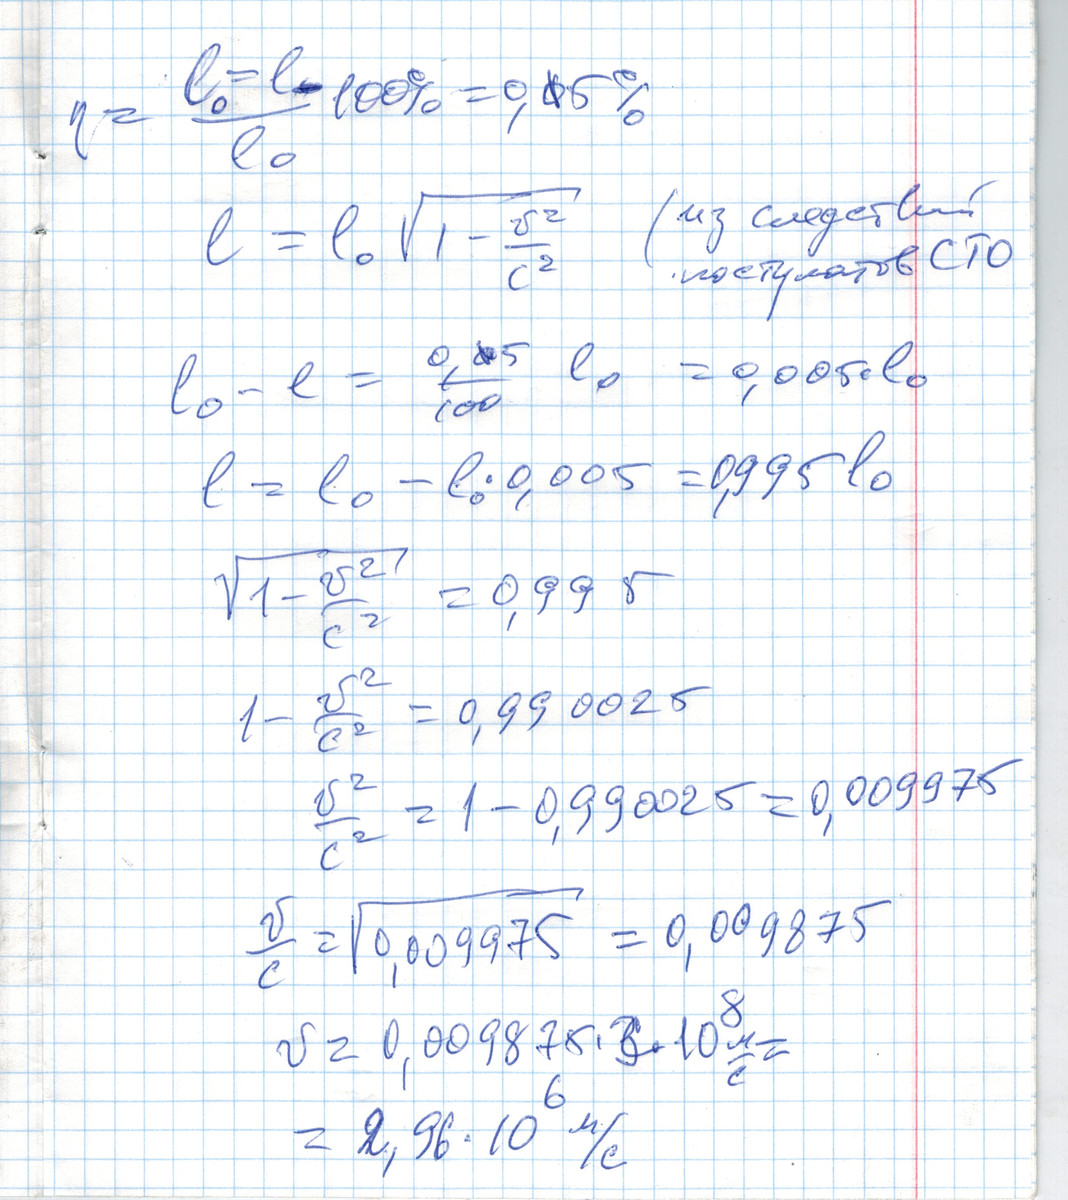 η = (l₀ = l)/l₀ 100% = 0,5%
l = l₀ √(1 - v²/c²) (из следствий
постулатов СТО
l₀ - l = 0,5/100 l₀ = 0,005·l₀
l = l₀ - l₀·0,005 = 0,995 l₀
√(1 - v²/c²) = 0,995
1 - v²/c² = 0,990025
v²/c² = 1 - 0,990025 = 0,009975
v/c = √0,009975 = 0,009875
v = 0,009875·3·10⁸ м/с =
= 2,96·10⁶ м/с